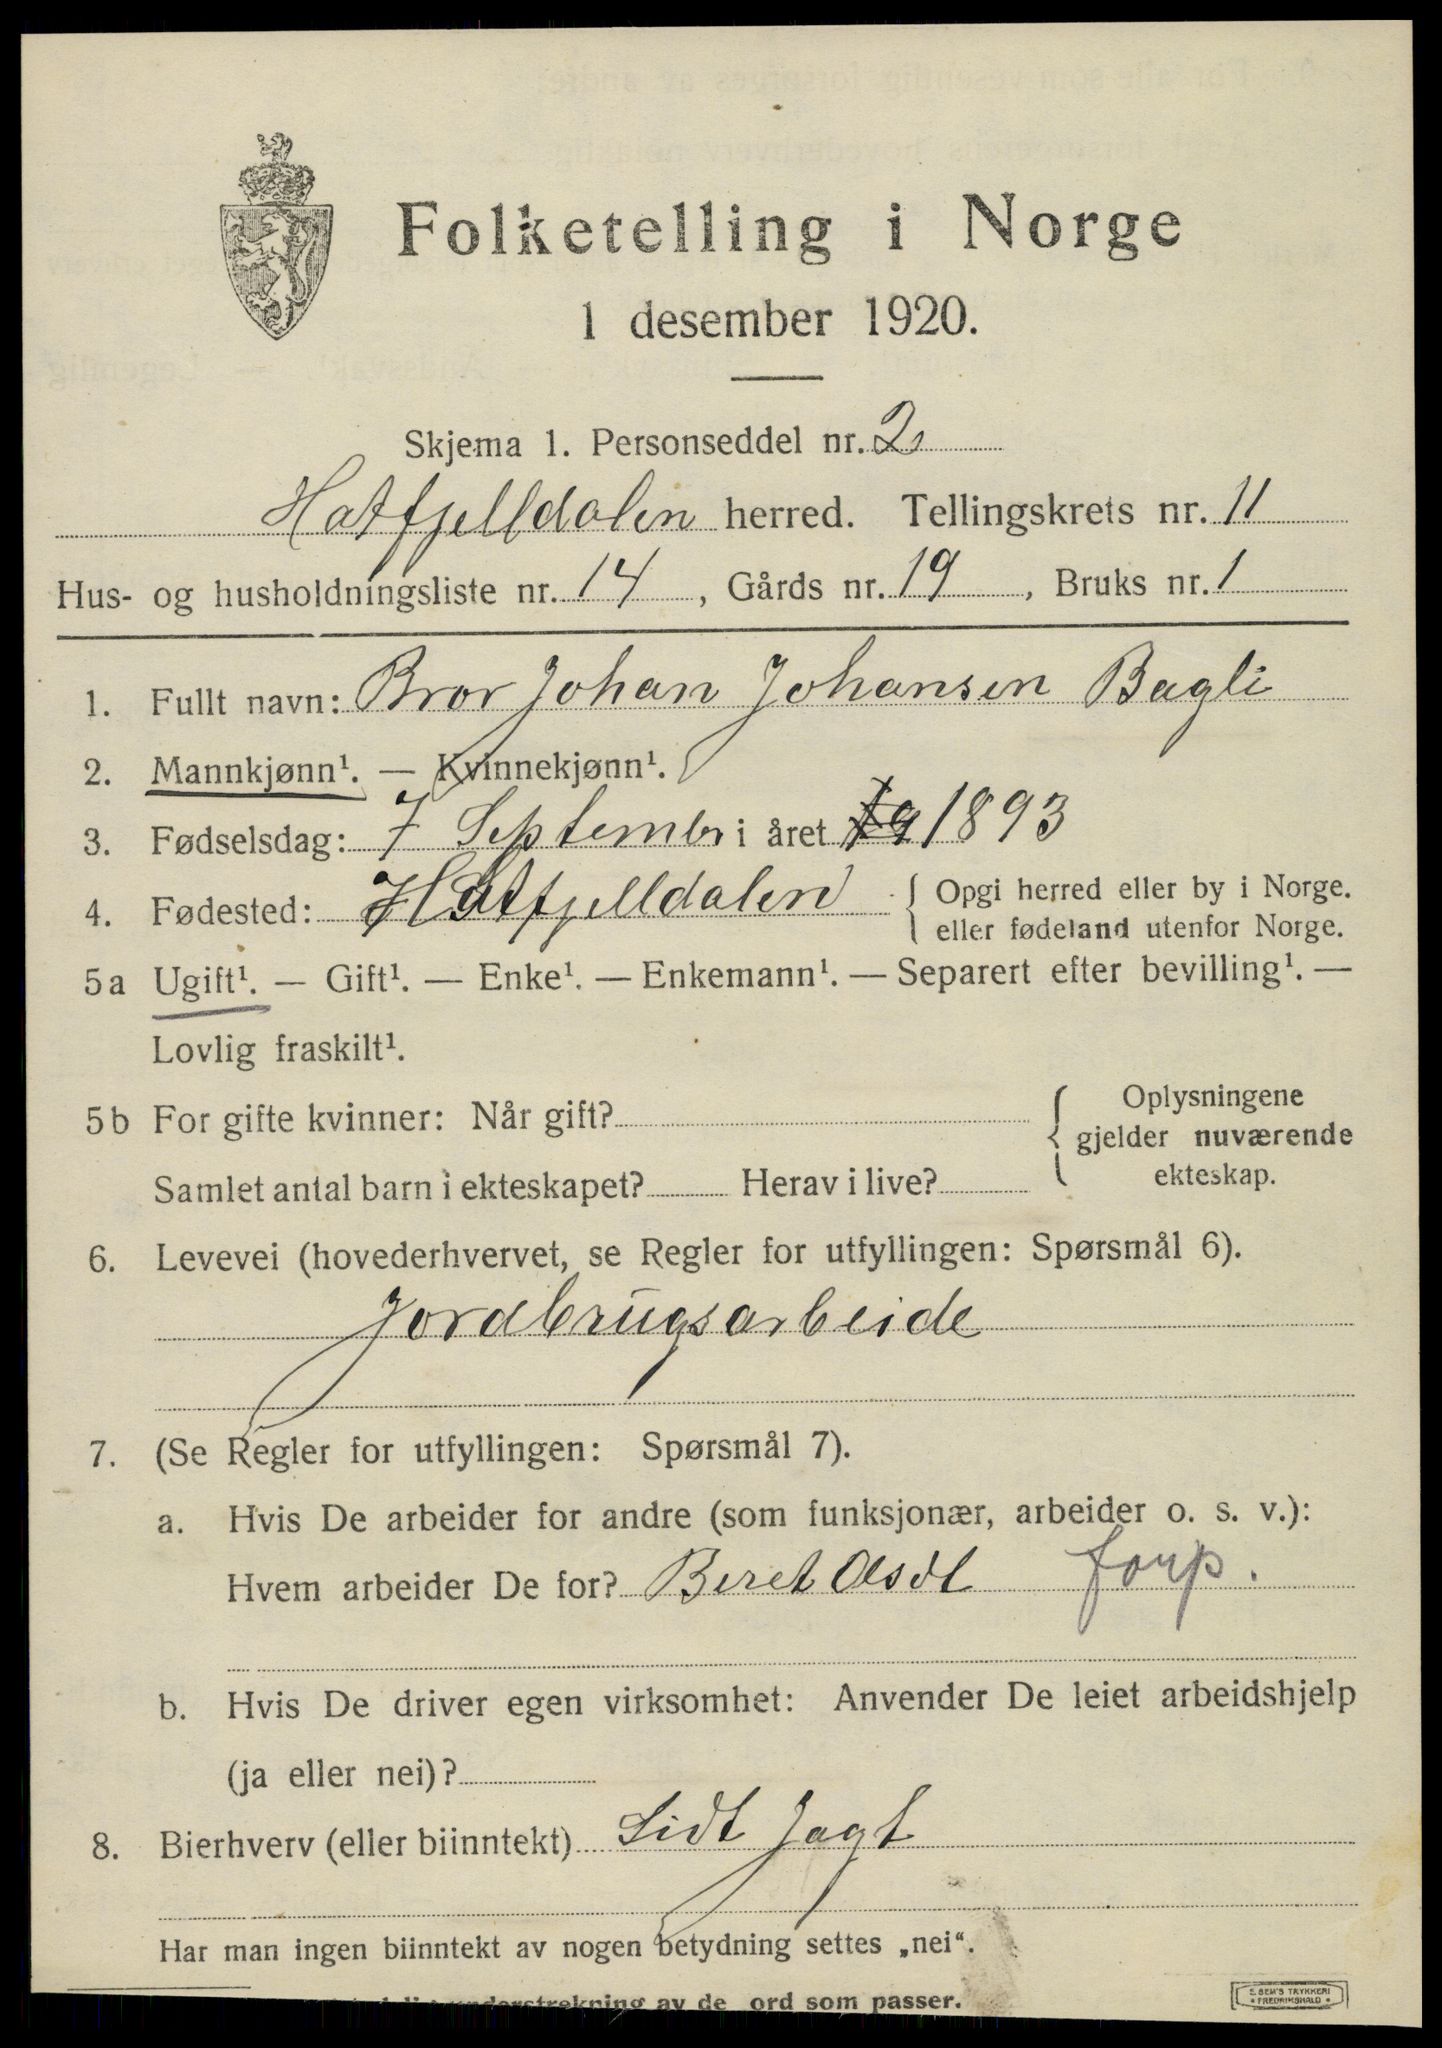 Folketelling i Norge
1 desember 1920.
Skjema 1. Personseddel nr. 2
Hatfjelldalen herred. Tellingskrets nr. 11
Hus- og husholdningsliste nr. 14, Gårds nr. 19, Bruks nr. 1
1. Fullt navn: Bror Johan Johansen Bagli
2. Mannkjønn¹. — Kvinnekjønn¹.
3. Fødselsdag: 7 Septembr i året 1893
4. Fødested: Hatfjelldalen { Opgi herred eller by i Norge.
eller fødeland utenfor Norge.
5a Ugift¹. — Gift¹. — Enke¹. — Enkemann¹. — Separert efter bevilling¹. —
Lovlig fraskilt¹.
5b For gifte kvinner: Når gift? { Oplysningene
gjelder nuværende
ekteskap.
Samlet antal barn i ekteskapet? Herav i live?
6. Levevei (hovederhvervet, se Regler for utfyllingen: Spørsmål 6).
Jordbrugsarbeide
7. (Se Regler for utfyllingen: Spørsmål 7).
a. Hvis De arbeider for andre (som funksjonær, arbeider o. s. v.):
Hvem arbeider De for? Beret Olsdt forp.
b. Hvis De driver egen virksomhet: Anvender De leiet arbeidshjelp
(ja eller nei)?
8. Bierhverv (eller biinntekt) Lidt Jagt
Har man ingen biinntekt av nogen betydning settes „nei“.
understrekning av de ord som passer.
E. SEM'S TRYKKERI
FREDRIKSHALD